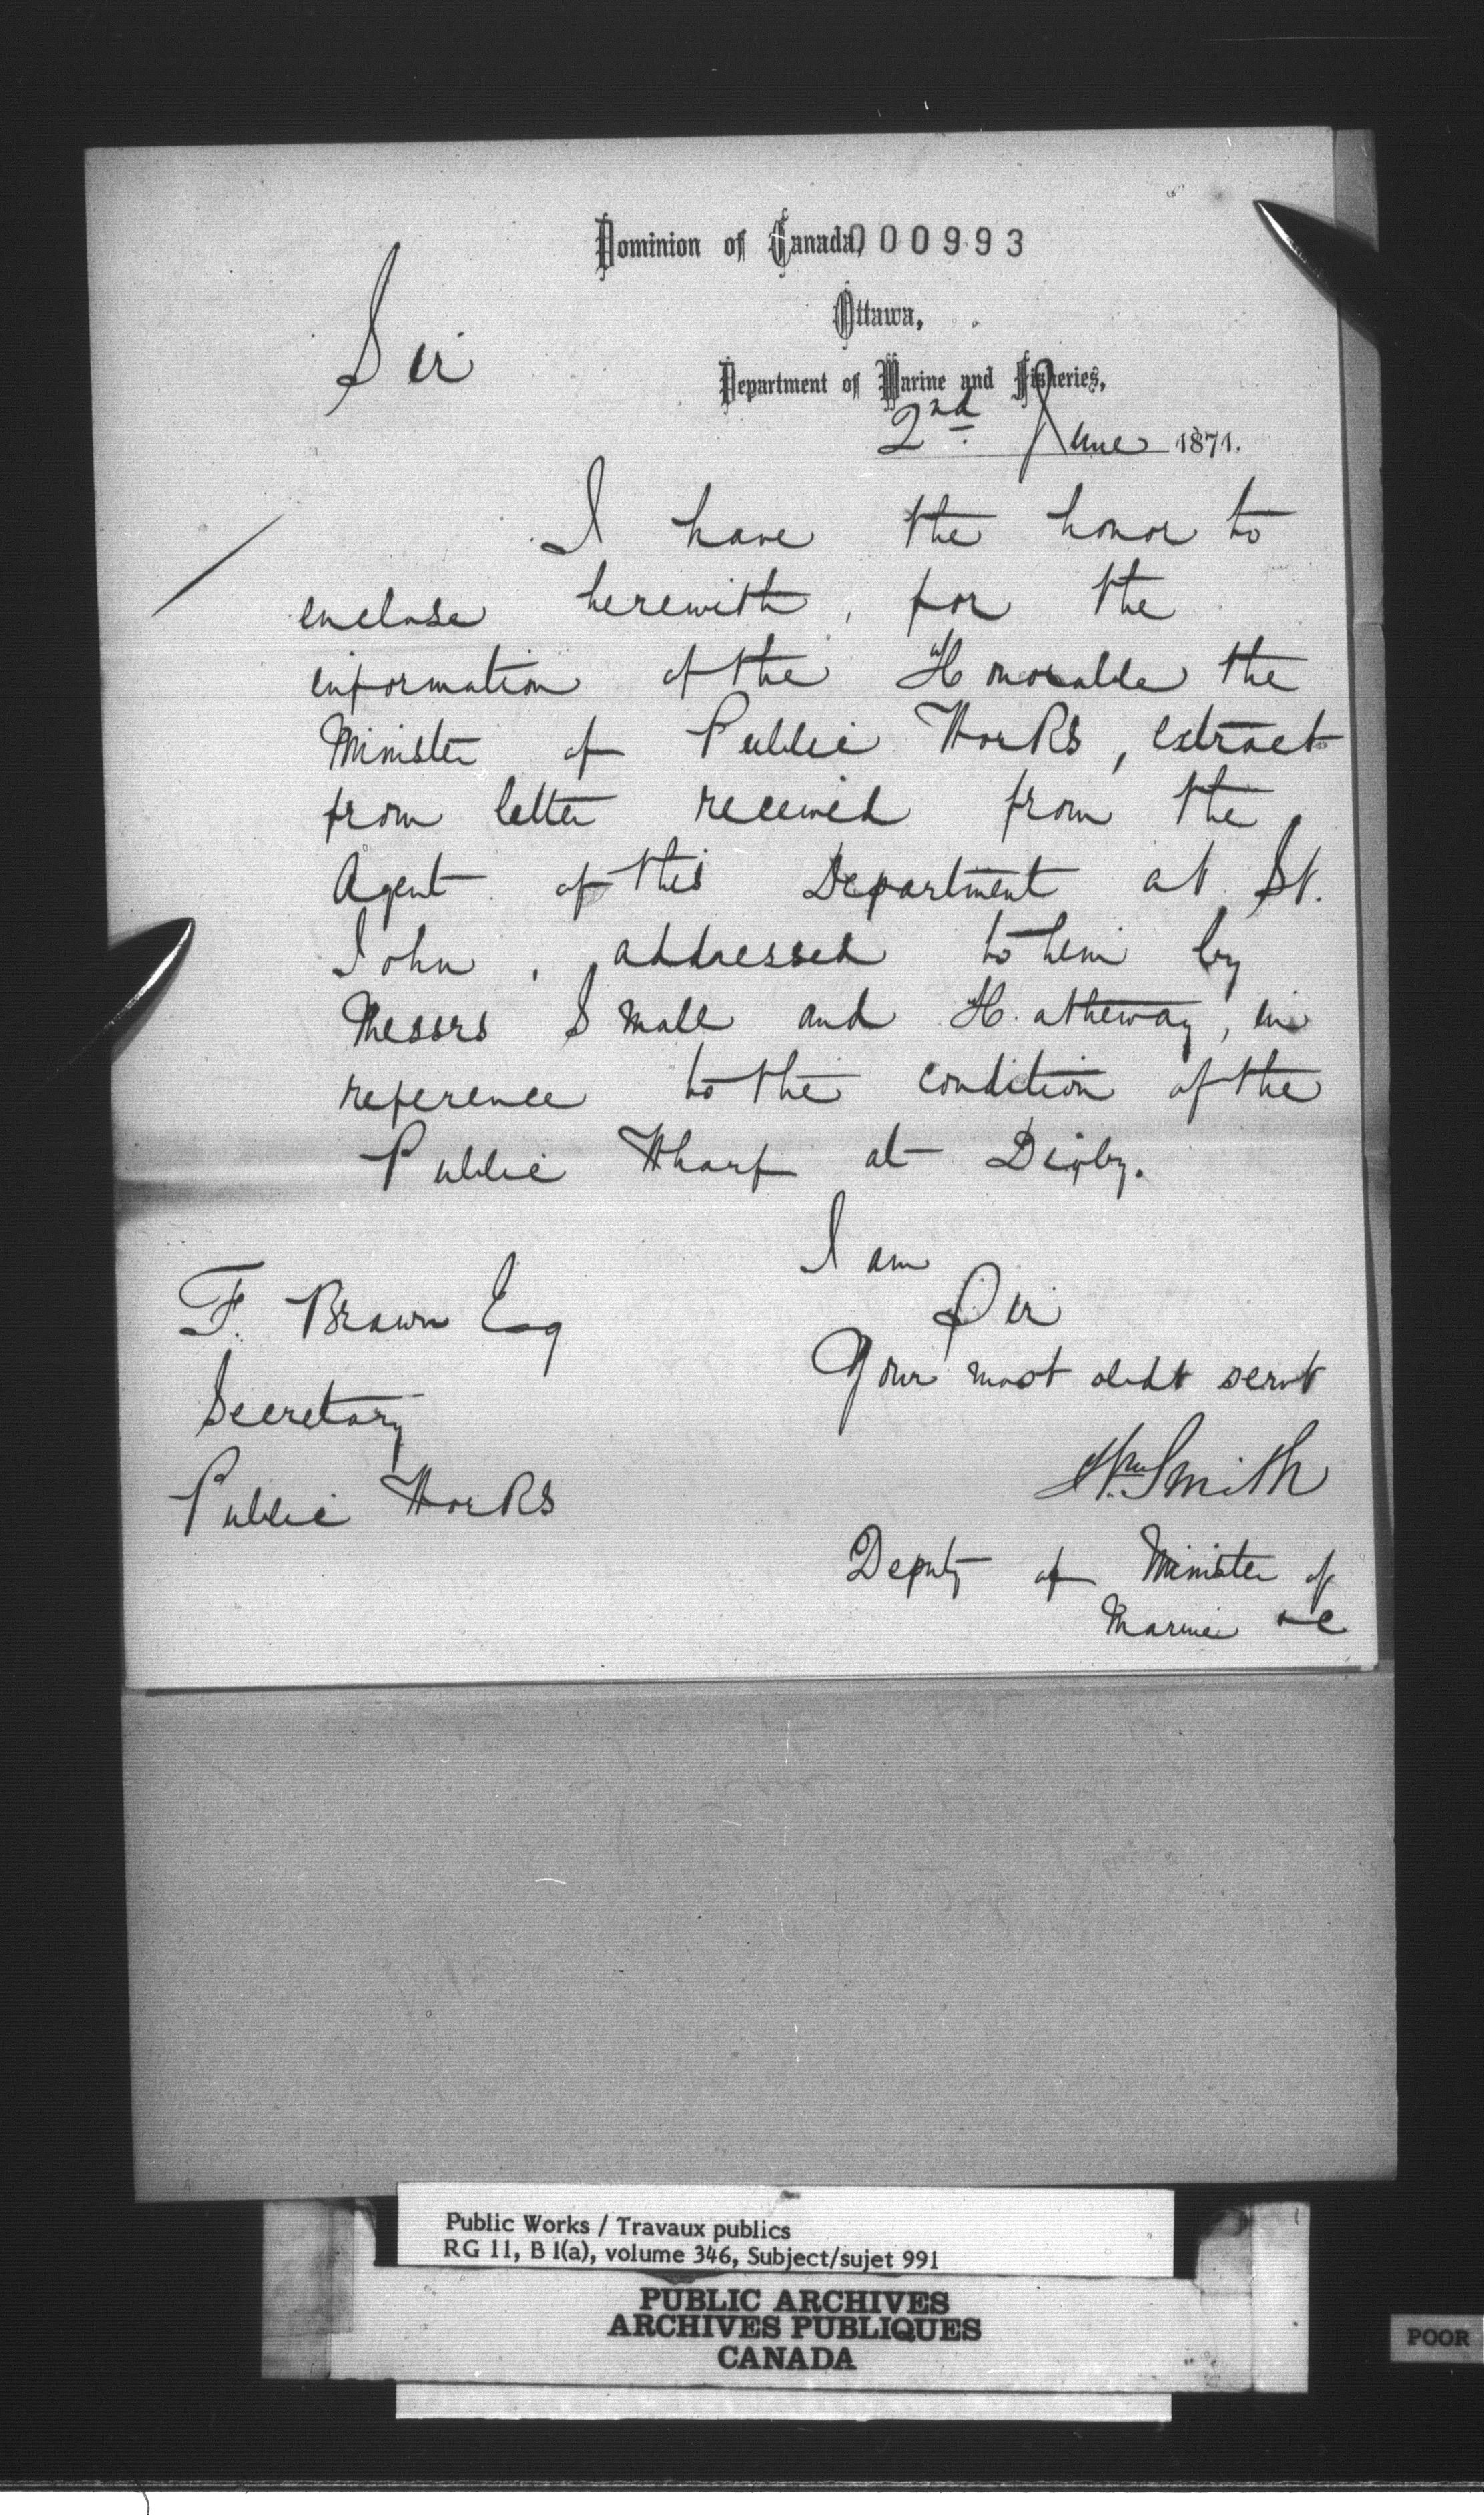 Dominion of Canada,
000993
Ottawa,
Department of Marine and Fisheries,
2nd. June 1871.
Sir
I have the honor to
enclose herewith, for the
information of the Honorable the
Minister of Public Works, extract
from letter received from the
Agent of this Department at St.
John, addressed to him by
Messrs Small and Hatheway, in
reference to the condition of the
Public Wharf at Digby.
I am
Sir
Your most obdt servt
Wm. Smith
Deputy of Minister of
Marine &c
F. Braun Esq
Secretary
Public Works
Public Works / Travaux publics
RG 11, B 1(a), volume 346, Subject/sujet 991
PUBLIC ARCHIVES
ARCHIVES PUBLIQUES
CANADA
POOR